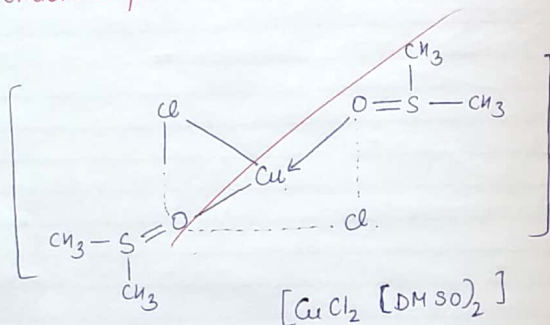 CH3
Cl
O=S—CH3
Cu
O
CH3—S=
Cl.
CH3
[CuCl2 [DMSO)2]